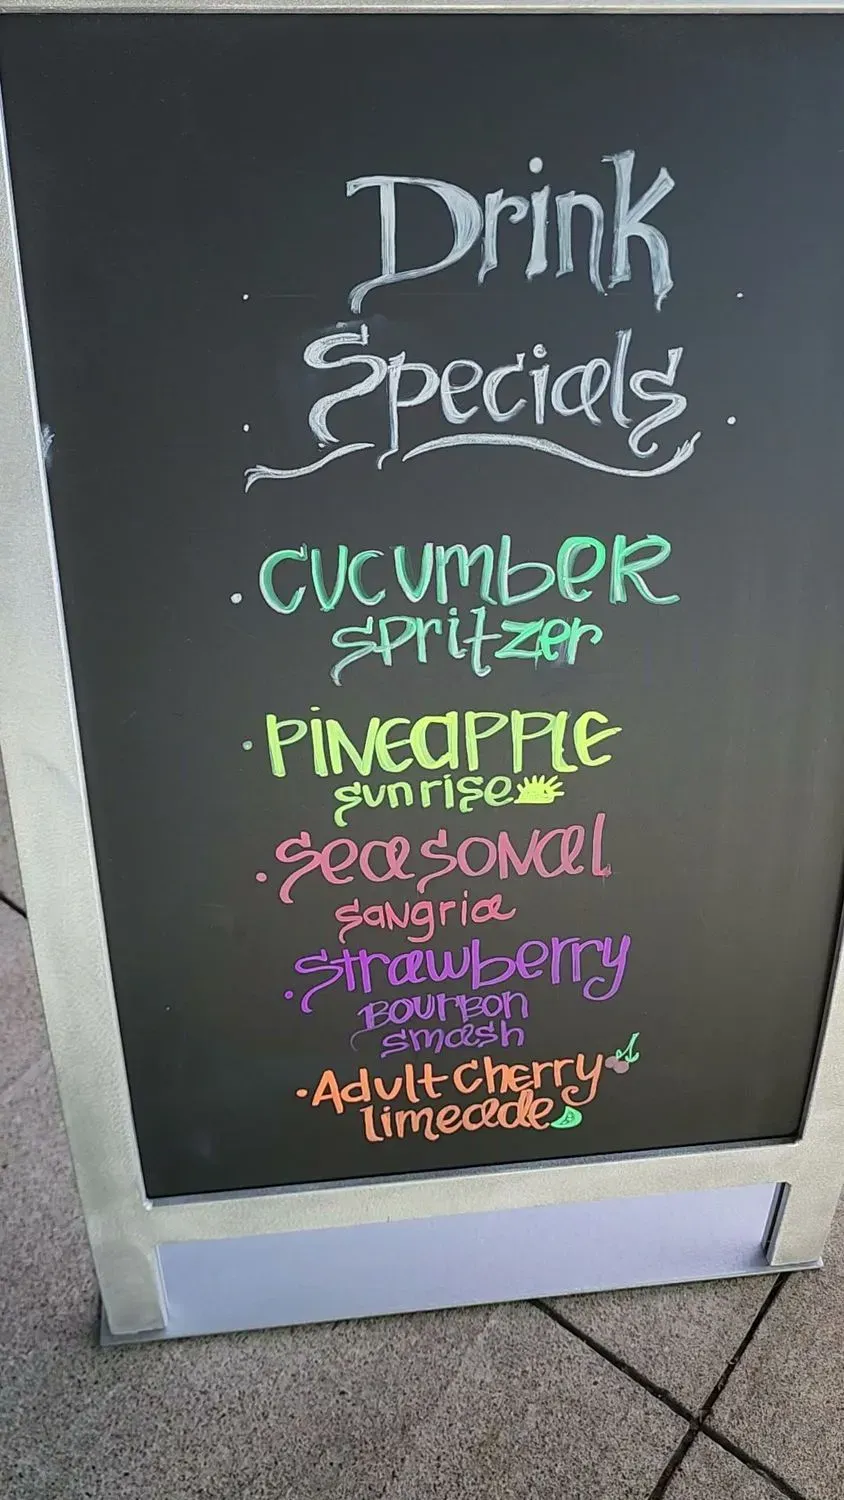 Drink
Specials
. CUCUMBER
Spritzer
. PINEAPPLE
sunrise
. SEASONAL
SANGRIA
. Strawberry
BOURBON
smash
. Adult Cherry
limeade